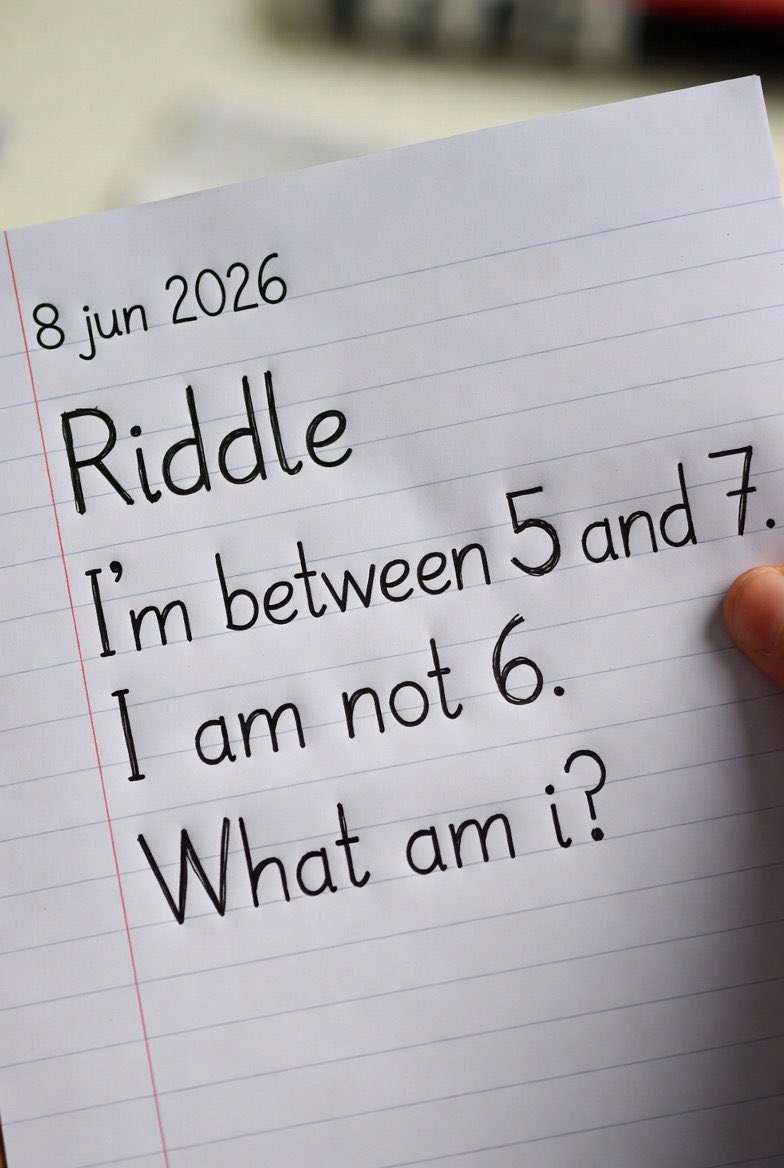 8 jun 2026
Riddle
I'm between 5 and 7.
I am not 6.
What am i?